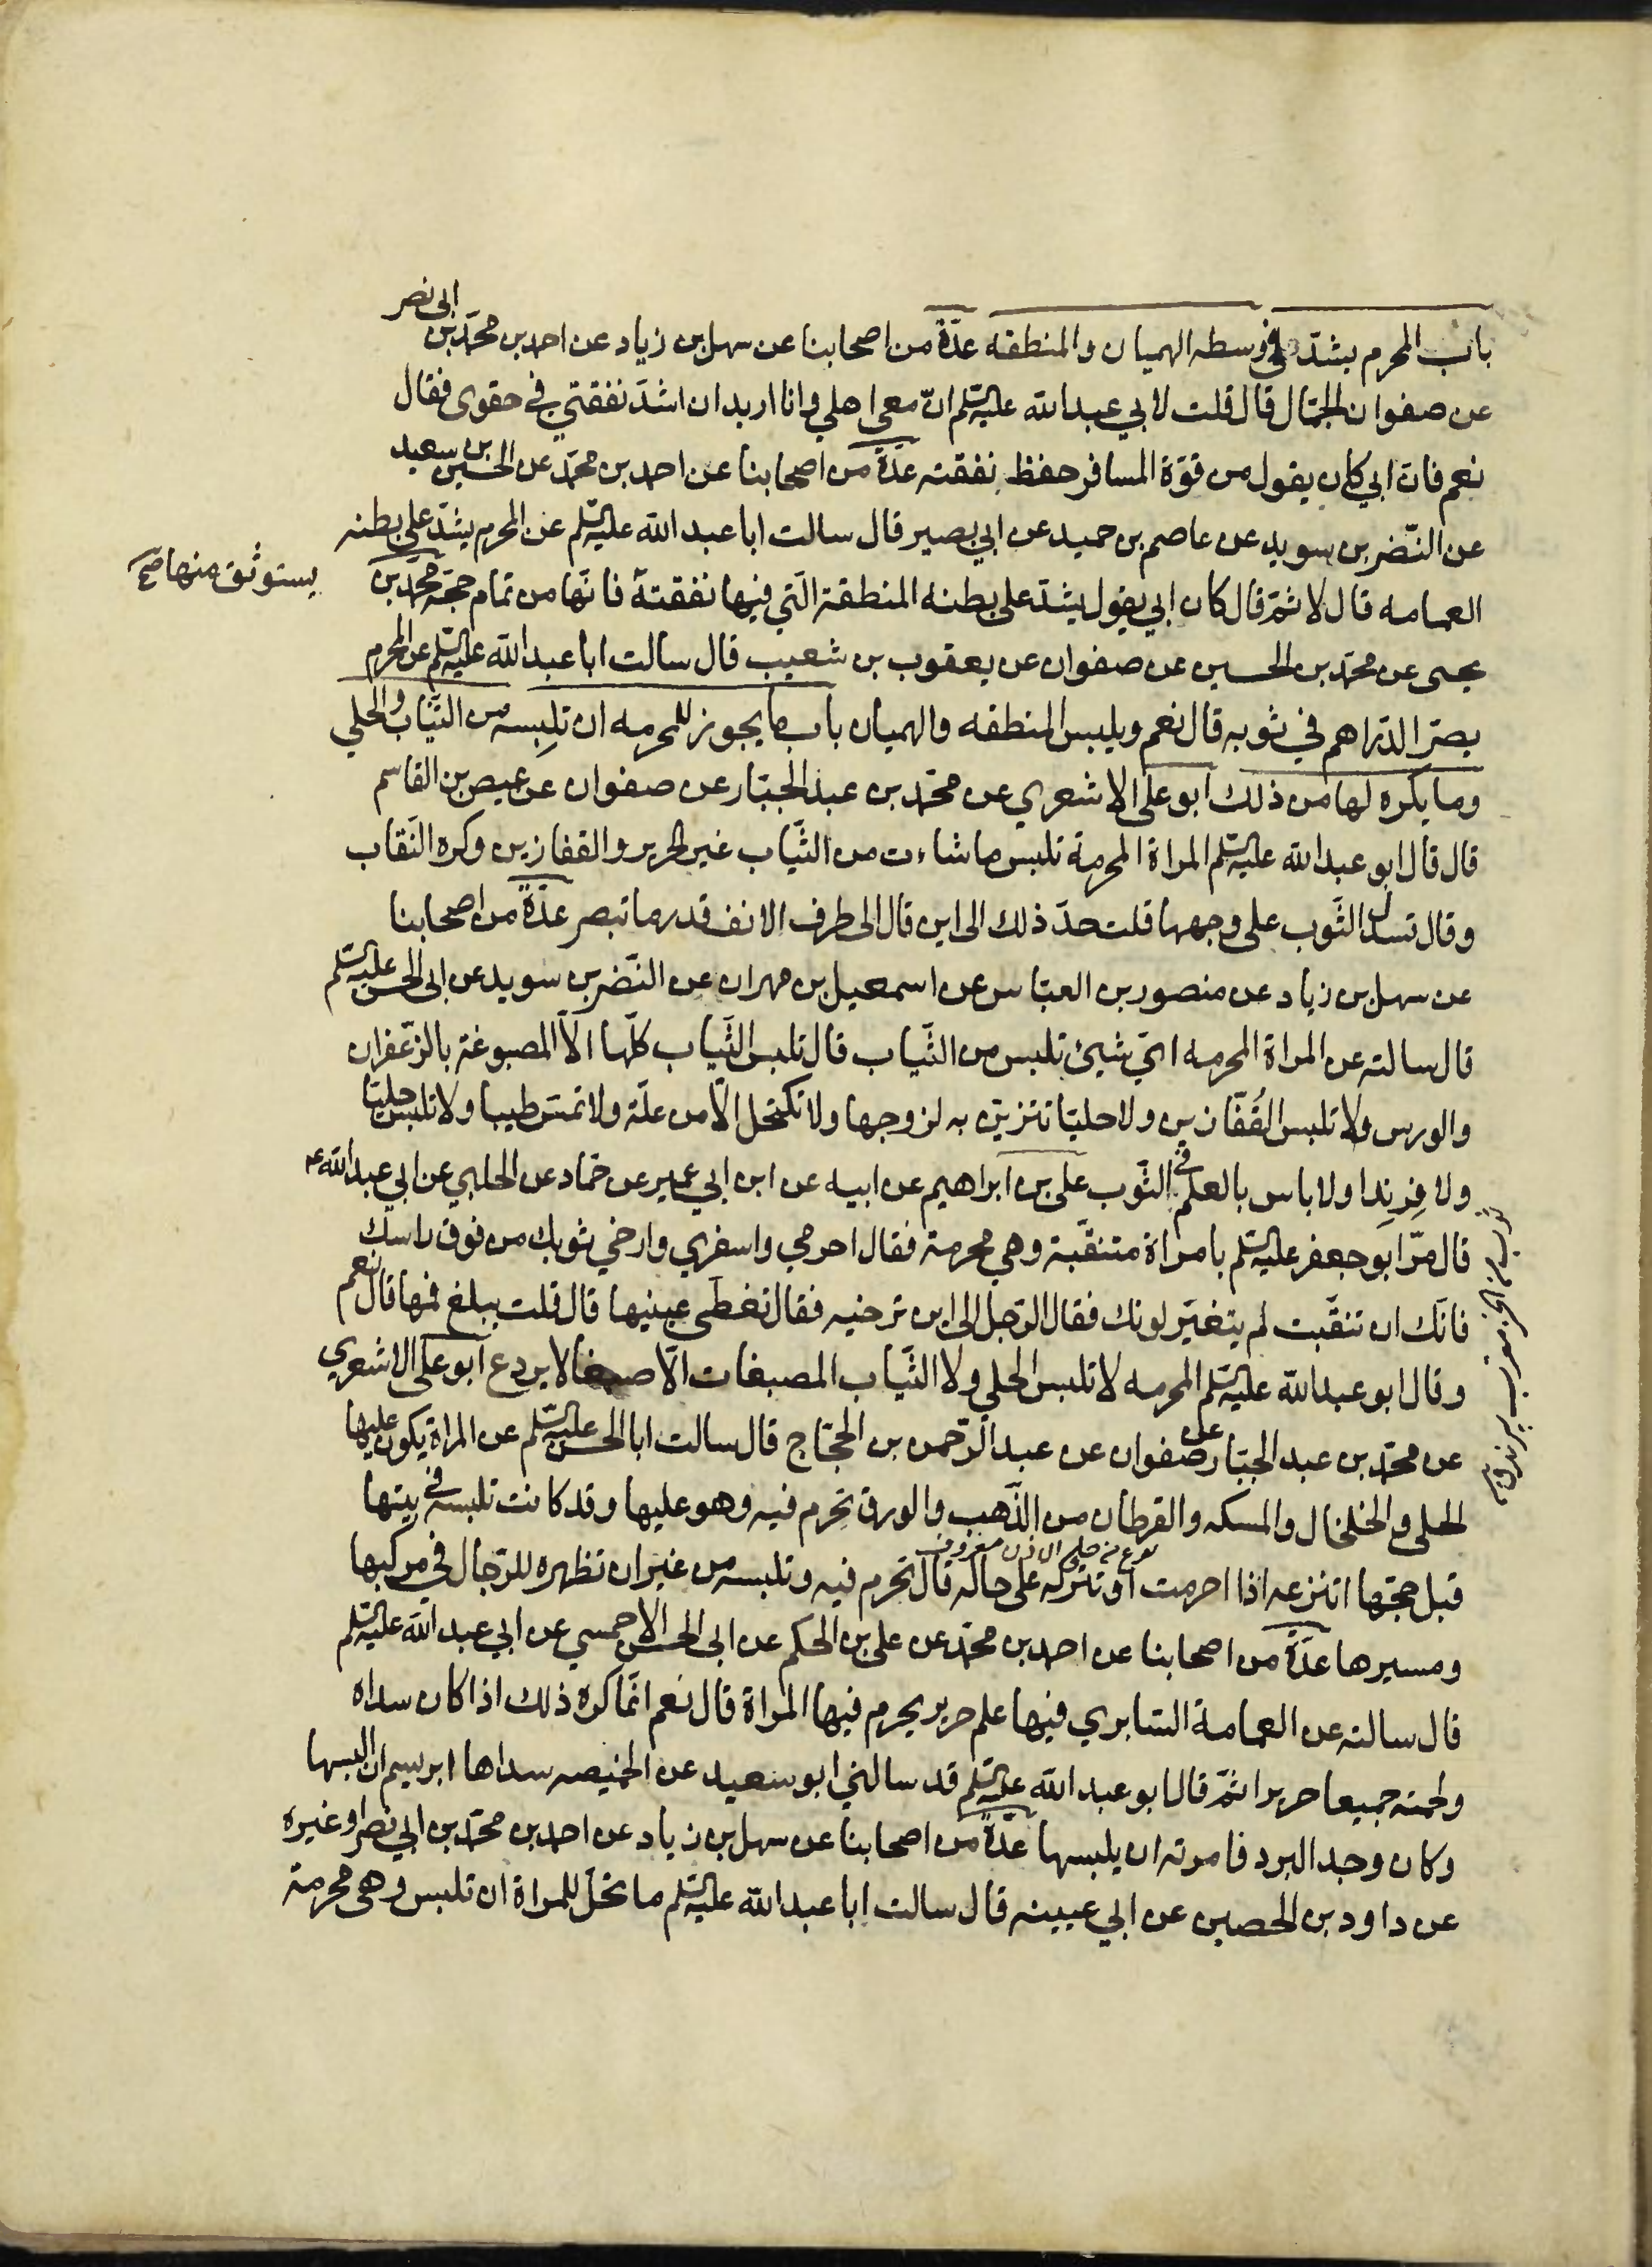 باب المحرم يشدّ في وسطه الهميان والمنطقه عدّة من اصحابنا عن سهل بن زياد عن احمد بن محمّد بن ابى نصر
عن صفوان الجمّال قال قلت لابي عبد الله عليه السلم انّ معي اهلي وانا اريد ان اشدّ نفقتي في حقوي فقال
نعم فانّ ابي كان يقول من قوّة المسافر حفظ نفقته عدّة من اصحابنا عن احمد بن محمّد عن الحسين بن سعيد
عن النّضر بن سويد عن عاصم بن حميد عن ابي بصير قال سالت ابا عبد الله عليه السلم عن المحرم يشدّ على بطنه
العمامه قال لا ثمّ قال كان ابي يقول يشدّ على بطنه المنطقة الّتي فيها نفقتة فانّها من تمام حجّه محمّد بن
يستوثق منها صح
يحيى عن محمّد بن الحسين عن صفوان عن يعقوب بن شعيب قال سالت ابا عبد الله عليه السلم عن المحرم
يصرّ الدّراهم في ثوبه قال نعم ويلبس المنطقه والهميان باب ما يجوز للمحرمه ان تلبسه من الثّياب والحلي
وما يكره لها من ذلك ابو على الاشعري عن محمّد بن عبد الجبّار عن صفوان عن عيص بن القاسم
قال قال ابو عبد الله عليه السلم المراة المحرمة تلبس ما شاءت من الثّياب غير الحرير والقفازين وكره النّقاب
وقال تسدل الثّوب على وجهها قلت حدّ ذلك الى اين قال الى طرف الانف قدر ما تبصر عدّة من اصحابنا
عن سهل بن زياد عن منصور بن العبّاس عن اسمعيل بن مهران عن النّضر بن سويد عن ابى الحسن عليه السلم
قال سالته عن المراة المحرمه ايّ شيئ تلبس من الثّياب قال تلبس الثّياب كلّها الّا المصبوغة بالزّعفران
والورس ولا تلبس القُفّازين ولا حليّا تتزيّن به لزوجها ولا تكتحل الّا من علّة ولا تمسّ طيبا ولا تلبس حليّا
ولا فِرِندا ولا باس بالعلم في الثّوب على بن ابراهيم عن ابيه عن ابن ابي عمير عن حمّاد عن الحلبي عن ابي عبد الله ع
قال مرّ ابو جعفر عليه السلم بامراة متنقّبة وهي محرمة فقال احرمي واسفري وارخي ثوبك من فوق راسك
فانّك ان تنقّبت لم يتغيّر لونك فقال الرّجل الى اين ترخيه فقال تغطّي عينيها قال قلت يبلغ فمها قال نعم
وقال ابو عبد الله عليه السلم المحرمه لا تلبس الحلي ولا الثّياب المصبغات الّا صبغا لا يردع ابو على الاشعري
عن محمّد بن عبد الجبّار عن صفوان عن عبد الرّحمن بن الحجّاج قال سالت ابا الحسن عليه السلم عن المراة يكون عليها
الحلى والخلخال والمسكه والقرطان من الذّهب والورق تحرم فيه وهو عليها وقد كانت تلبسه في بيتها
قبل حجّها اتنزعه اذا احرمت او تتركه على حاله قال تحرم فيه وتلبسه من غير ان تظهره للرّجال في مركبها
ومسيرها عدّة من اصحابنا عن احمد بن محمّد عن على بن الحكم عن ابى الحسن الاحمسي عن ابي عبد الله عليه السلم
قال سالته عن العمامة السّابري فيها علم حرير يحرم فيها المراة قال نعم انّما كره ذلك اذا كان سداه
ولحمته جميعا حريرا ثمّ قال ابو عبد الله عليه السلم قد سالني ابو سعيد عن الخميصه سداها ابريسم ان البسها
وكان وجد البرد فامرته ان يلبسها عدّة من اصحابنا عن سهل بن زياد عن احمد بن محمّد بن ابي نصر او غيره
عن داود بن الحصين عن ابي عيينه قال سالت ابا عبد الله عليه السلم ما تحلّ للمراة ان تلبس وهي محرمة